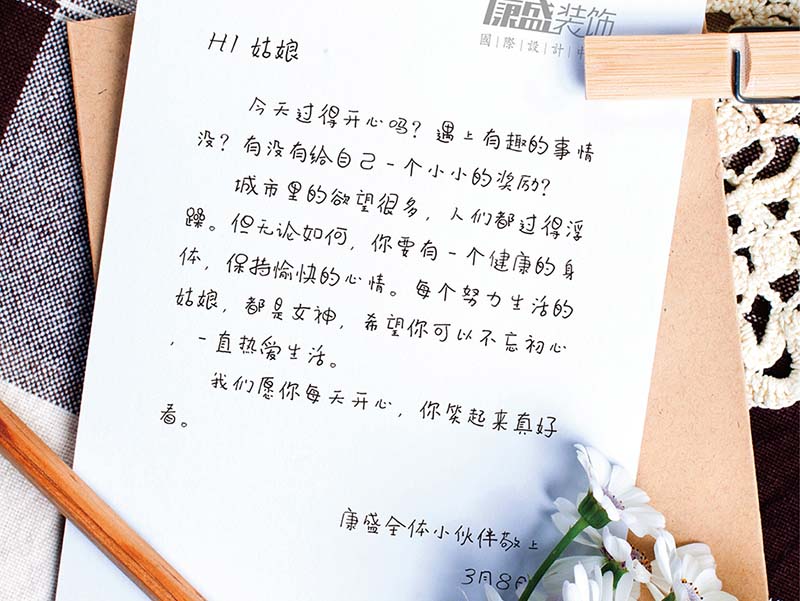 康盛装饰
國際設計中
HI 姑娘
今天过得开心吗？遇上有趣的事情
没？有没有给自己一个小小的奖励？
城市里的欲望很多，人们都过得浮
躁。但无论如何，你要有一个健康的身
体，保持愉快的心情。每个努力生活的
姑娘，都是女神，希望你可以不忘初心
，一直热爱生活。
我们愿你每天开心，你笑起来真好
看。
康盛全体小伙伴敬上
3月8日